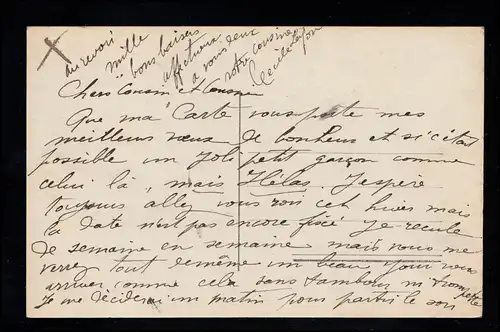 Chers Cousin et Cousine
Que ma Carte vous porte mes
meilleurs vœux de bonheur et si c'était
possible un joli petit garçon comme
celui là, mais Hélas. J'espère
toujours aller vous voir cet hiver mais
la date n'est pas encore fixée je recule
de semaine en semaine mais vous me
verrez tout de même un beau jour vous
arriver comme cela sans tambour ni trompette
Je me déciderai un matin pour partir le soir
au revoir
mille bons baisers
affectueux
a vous deux
votre cousine
Cécile